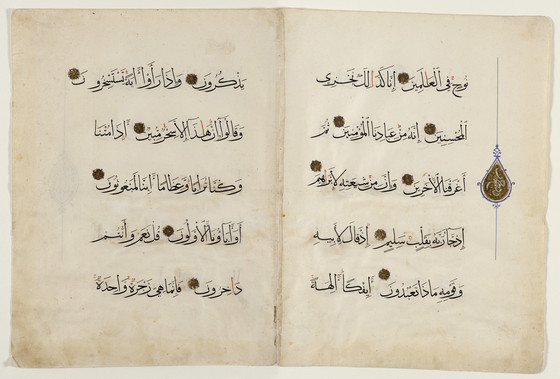 نوح في العالمين إنا كذلك نجزي
المحسنين إنه من عبادنا المؤمنين ثم
أغرقنا الآخرين وإن من شيعته لإبرهيم
إذ جاء ربه بقلب سليم إذ قال لأبيه
وقومه ماذا تعبدون أئفكا آلهة
يذكرون وإذا رأوا آية يستسخرون
وقالوا إن هذا إلا سحر مبين أإذا متنا
وكنا ترابا وعظاما أإنا لمبعوثون
أوآباؤنا الأولون قل نعم وأنتم
داخرون فإنما هي زجرة واحدة